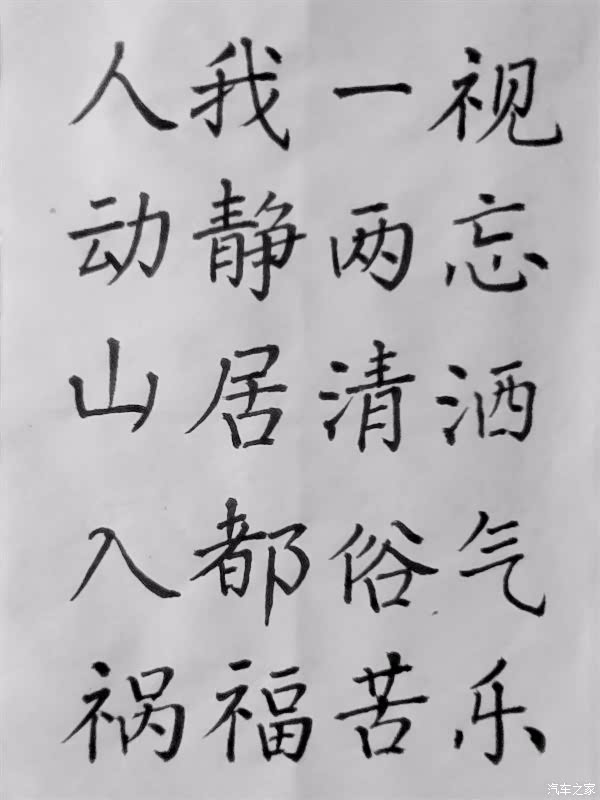 人我一视
动静两忘
山居清洒
入都俗气
祸福苦乐
汽车之家